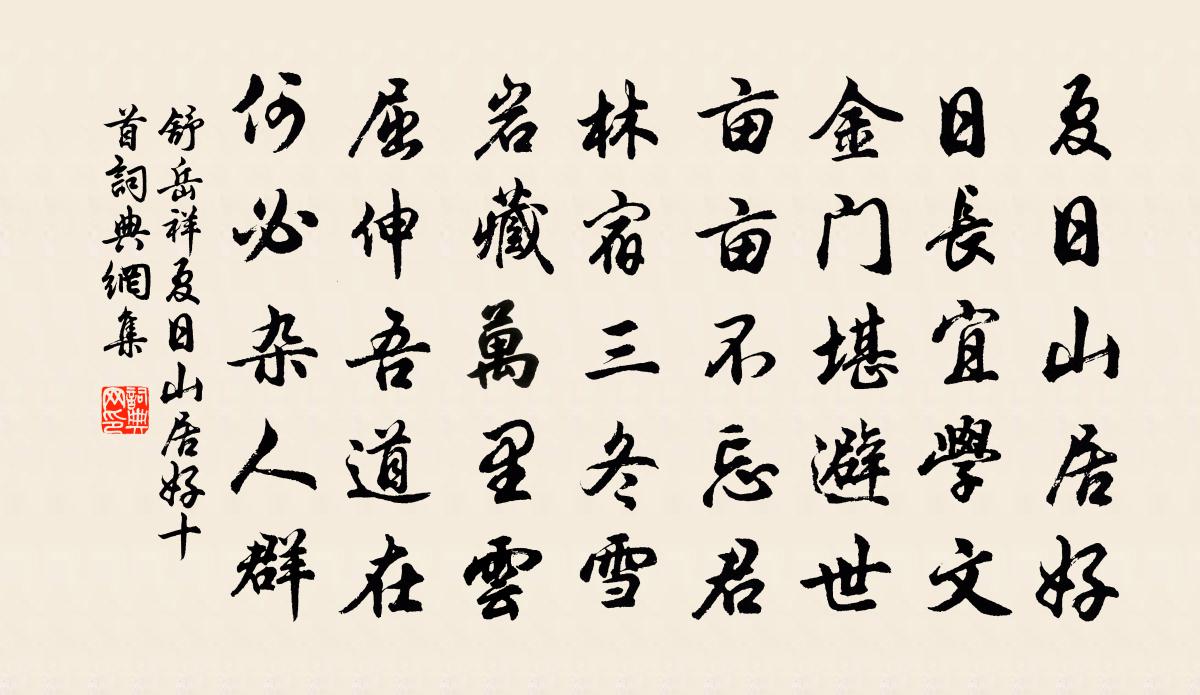 夏日山居好
日長宜學文
金門堪避世
亩亩不忘君
林宿三冬雪
岩藏萬里雲
屈伸吾道在
何必杂人群
舒岳祥夏日山居好十
首詞典網集
詞典
网印